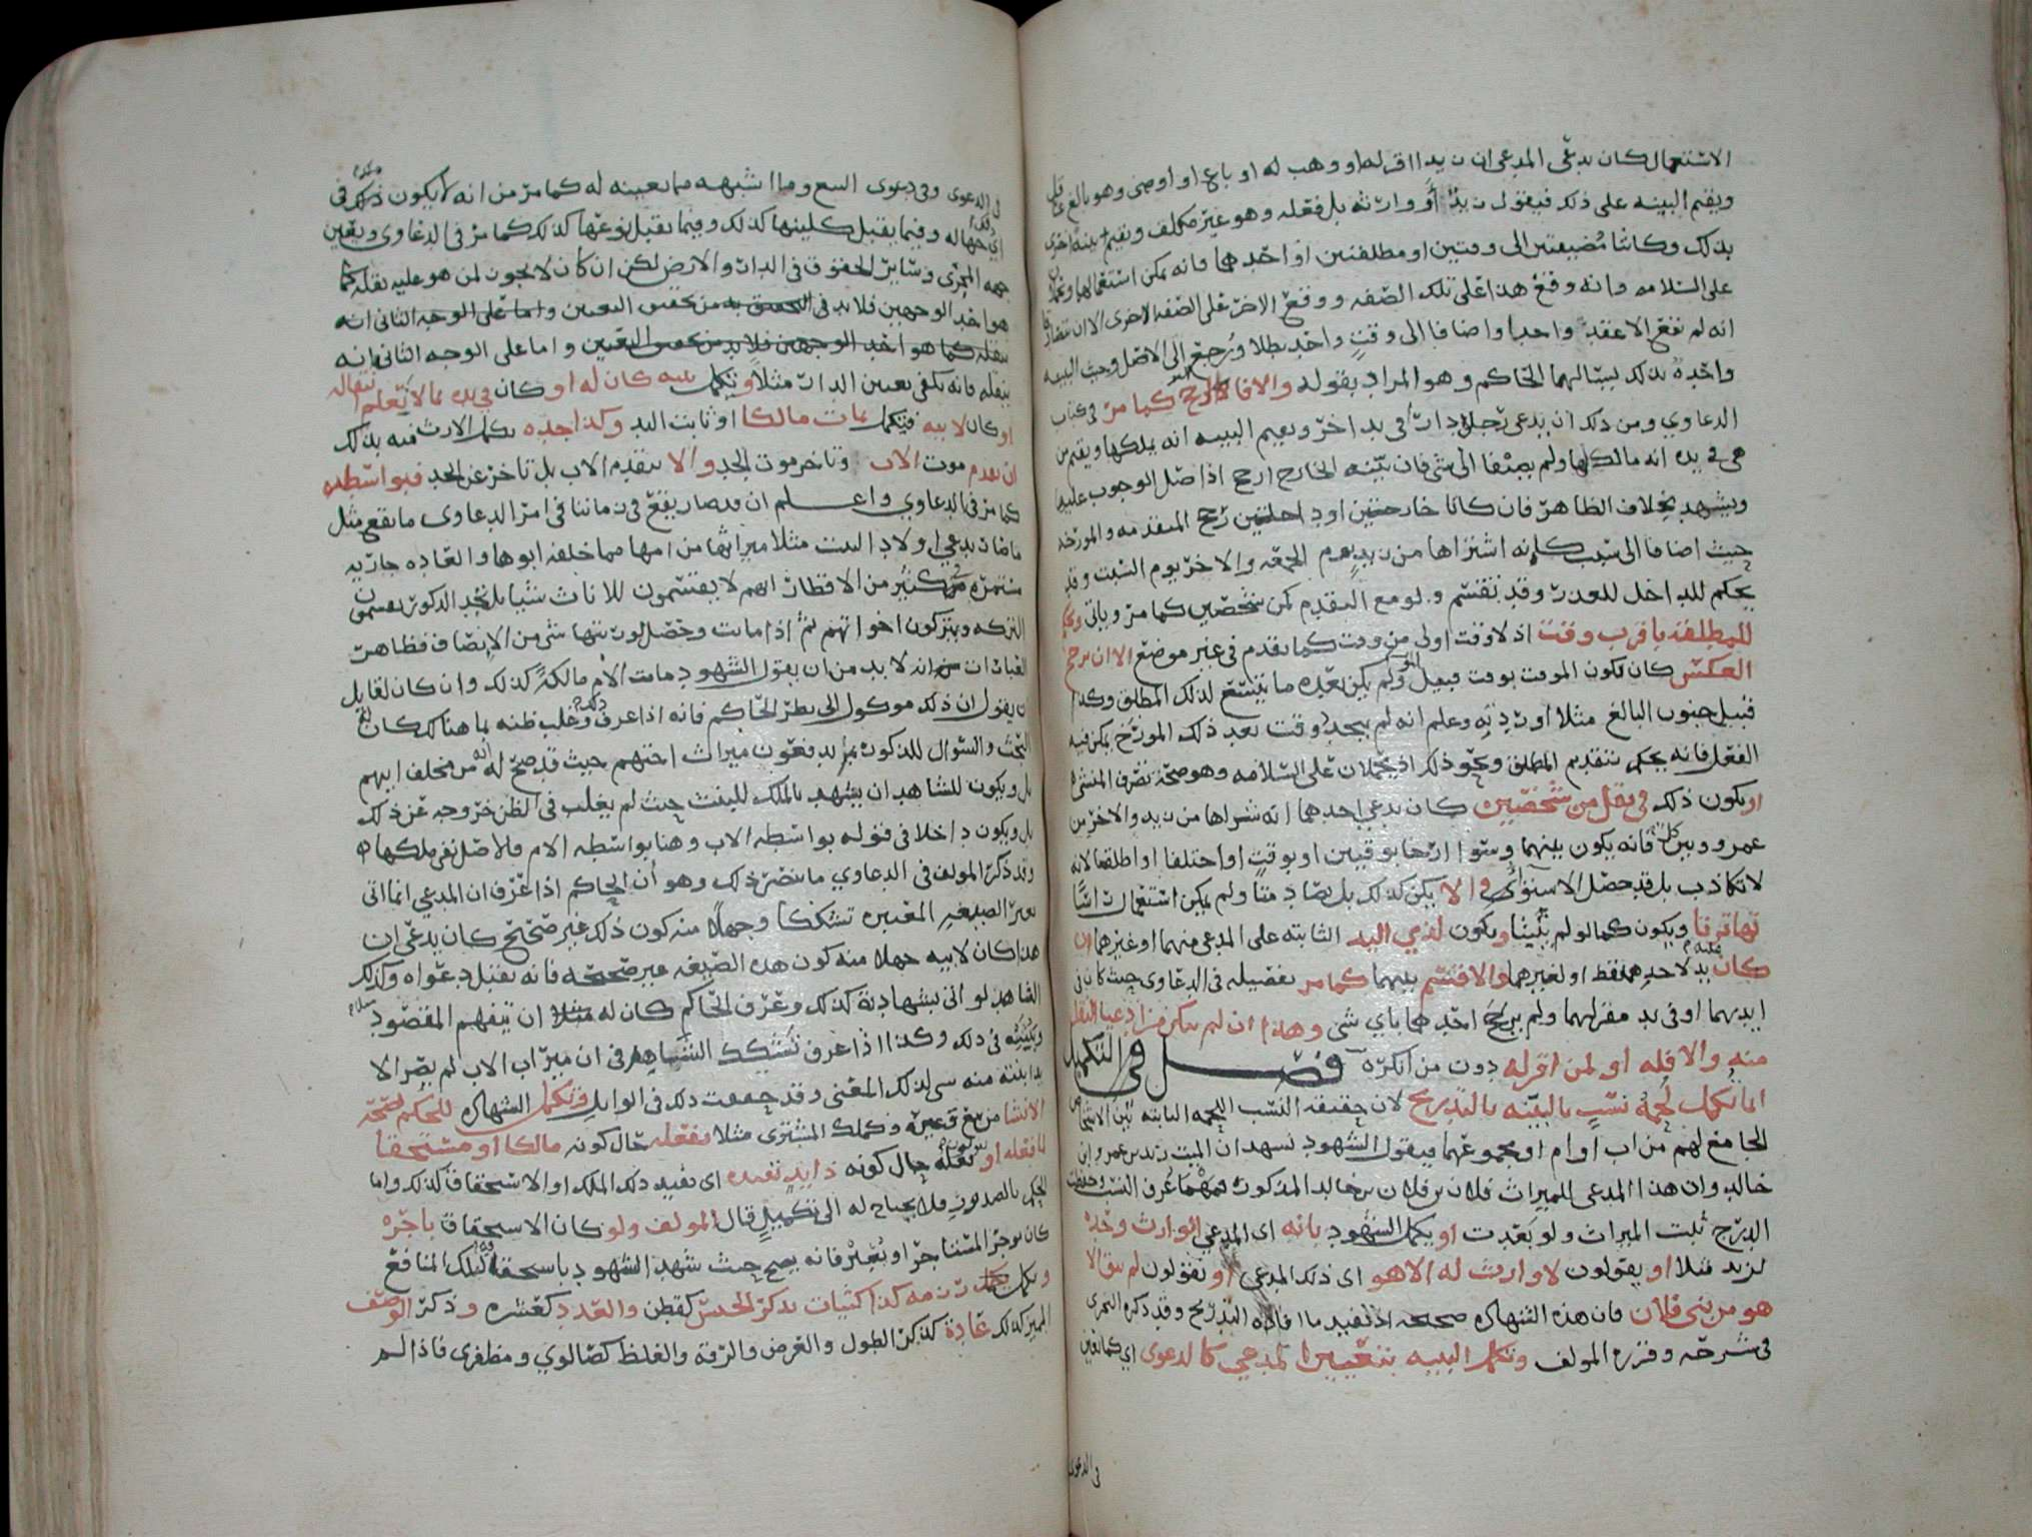 الاستعمال كان يدعي المدعي ان زيدا اقر له او وهب له او باع او اوصى وهو بالغ عاقل
ويقيم البينه على ذلك فيقول زيد او وارثه بل فعله وهو غير مكلف ويقيم بينة اخرى
بذلك وكانتا مضيفتين الى وقتين او مطلقتين او احدهما فانه يمكن استعمالهما
على السلامه وانه وقع هذا على تلك الصفه ووقع الاخر على الصفه الاخرى الا ان يتصادقا
انه لم يقع الا عقد واحد او اضافا الى وقت واحد بطلا ورجع الى الاصل وحيث البينه
واحدة بذلك يستالهما الحاكم وهو المراد بقوله والا فالارجح كما مر في كتاب
الدعاوي ومن ذلك ان يدعي رجل دارا في يد اخر ويقيم البينه انه يملكها ويقيم من
هي في يده انه مالكها ولم يضيفا الى شي فان بينه الخارج ارجح اذ اصل الوجوب عليه
ويشهد بخلاف الظاهر فان كانا خارجتين او داخلتين رجح المتقدمه والمورخه
حيث اضافا الى سبب ككونه اشتراها من زيد يوم الجمعه والاخر يوم السبت وقد
يحكم للداخل للعذر وقد تقسم ولو مع التقدم كمن شخصين كما مر وياتي ويحكم
للمطلقة باقرب وقت اذ لا وقت اولى من وقت كما تقدم في غير موضع الا ان يرجح
العكس كان تكون الموقت بوقت قبيل الموت ولم يكن بعده ما يتسع لذلك المطلق وكذا
قبيل جنون البالغ مثلا او ردته وعلم انه لم يجد وقت بعد ذلك المورخ يمكن فيه
الفعل فانه يحكم بتقديم المطلق ونحو ذلك اذ يحملان على السلامه وهو صحة تصرف المنشئ
او يكون ذلك في نقل من شخصين كان يدعي احدهما انه شراها من زيد والاخر من
عمرو وبين كل فانه يكون بينهما وسوا ارخا بوقتين او بوقت او اختلفا او اطلقا لانه
لا تكاذب بل قد حصل الاستواء والا يكن كذلك بل تضادمتا ولم يمكن استعمال راسا
تهاترتا ويكون كما لو لم يبينا ويكون لذي اليد الثابته على المدعى منهما او غيرهما ان
كان بيد احدهما فقط او لغيرهما والا قسم بينهما كما مر تفصيله في الدعاوى حيث كان في
ايديهما او في يد مقر لهما ولم يرجح احدهما باي شي وهذا ان لم يكن مرا دعيا النقل
منه والا فله او لمن اقر له دون من انكره فصل في التكميل
انما تكمل لحمة نسب بالبينه بالتدريج لان حقيقه النسب اللحمه الثابته بين الاشخاص
الجامع لهم من اب او ام او مجموعهما فيقول الشهود نشهد ان الميت زيد بن عمرو بن
خالد وان هذا المدعي للميراث فلان بن فلان بن خالد المذكور فمهما عرف النسب وحفظت
الدرج ثبت الميراث ولو بعدت او يكمل الشهود بانه اى المدعي الوارث وحده
لزيد مثلا او يقولون لا وارث له الا هو اى ذلك المدعي او يقولون لم يبق الا
هو من بني فلان فان هذه الشهاده صحيحه اذ تفيد ما افاده التدريج وقد ذكره النجري
في شرحه وقرره المولف وتكمل البينه بتعيين المدعى كالدعوى اي كما يعين
في الدعوى
في الدعوى وفي دعوى البيع وما اشبهه مما يعينه له كما مر من انه لا يكون ذكره في
اي جهاله وفيما يقبل كليتها كذلك وفيما يقبل نوعها كذلك كما مر في الدعاوى ويعين
جهه المجرى وسائر الحقوق في الدار والارض لكن ان كان لا يجوز لمن هو عليه نقله كما
هو احد الوجهين فلا بد في التحقيق به من تحقيق التعيين واما على الوجه الثاني انه
ينقله كما هو احد الوجهين فلا بد من تحقيق التعيين واما على الوجه الثاني انه
ينقله فانه يكفي تعيين الدار مثلا وتكمل بينه كان له او كان في يده بما لا يعلم انتقاله
او كان لابيه فيتكمل بمات مالكا او ثابت اليد وكذا جده بكمل الارث فيه بذلك
ان تقدم موت الاب وتاخر موت الجد والا يتقدم الاب بل تاخر عن الجد فبواسطته
كما مر في الدعاوي واعلم ان قد صار يقع في زماننا في امر الدعاوى ما يقع مثل
ما صار يدعي اولاد البنت مثلا ميراثها من امها مما خلفه ابوها والعاده جاريه
مستمره في كثير من الاقطار انهم لا يقسمون للاناث شيئا بل تجد الذكور يقتسمون
التركه ويتركون اخواتهم ثم اذا ماتت وحصل لورثتها شي من الانصاف فظاهر
العبارات انه لا بد من ان يقول الشهود ماتت الام مالكة كذلك وان كان لقايل
ان يقول ان ذلك موكول الى نظر الحاكم فانه اذا عرف وغلب ظنه بما هنالك كان له
البحث والسؤال للذكور بم يدفعون ميراث اختهم حيث قد صح له انه من مخلف ابيهم
بل ويكون للشاهد ان يشهد بالملك للبنت حيث لم يغلب في الظن خروجه عن ذلك
بل ويكون داخلا في قوله بواسطه الاب وهنا بواسطه الام فالاصل بقى ملكها له
وقد ذكر المولف في الدعاوي ما ينصر ذلك وهو ان الحاكم اذا عرف ان المدعي انما اتى
بغير الصيغه المعتبره تشككا وجهلا منه كون ذلك غير صحيح كان يدعي ان
هذا كان لابيه جهلا منه كون هذه الصيغه غير صحيحه فانه يقبل دعواه وكذلك
الشاهد لو اتى بشهادته كذلك وعرف الحاكم كان له مثلا ان يتفهم المقصود
وبينته في ذلك وكذا اذا عرف تشكك الشاهد في ان ميراث الاب لم يصر الا
بدا بنته منه شي لذلك المعنى وقد حققت ذلك في الوابل وتكمل الشهاده للحاكم لصحة
الانشا من بيع وغيره وكملك المشترى مثلا بفعله حال كونه مالكا او مستحقا
لما فعله او يقولون فعله حال كونه ذا يد تفيده اى تفيد ذلك الملك او الاستحقاق كذلك واما
الحكم بالصدور فلا يحتاج له الى تكميل قال المولف ولو كان الاستحقاق باجره
كان يوجر المستاجر او يعير فانه يصح حيث شهد الشهود باستحقاقه لتلك المنافع
وتكمل رزمه كذا كثياب بذكر الجنس كقطن والعدد كعشره وذكر الوصف
المميز كذلك عادة كذكر الطول والعرض والرقه والغلظ كصالوي ومظفري فاذا لم